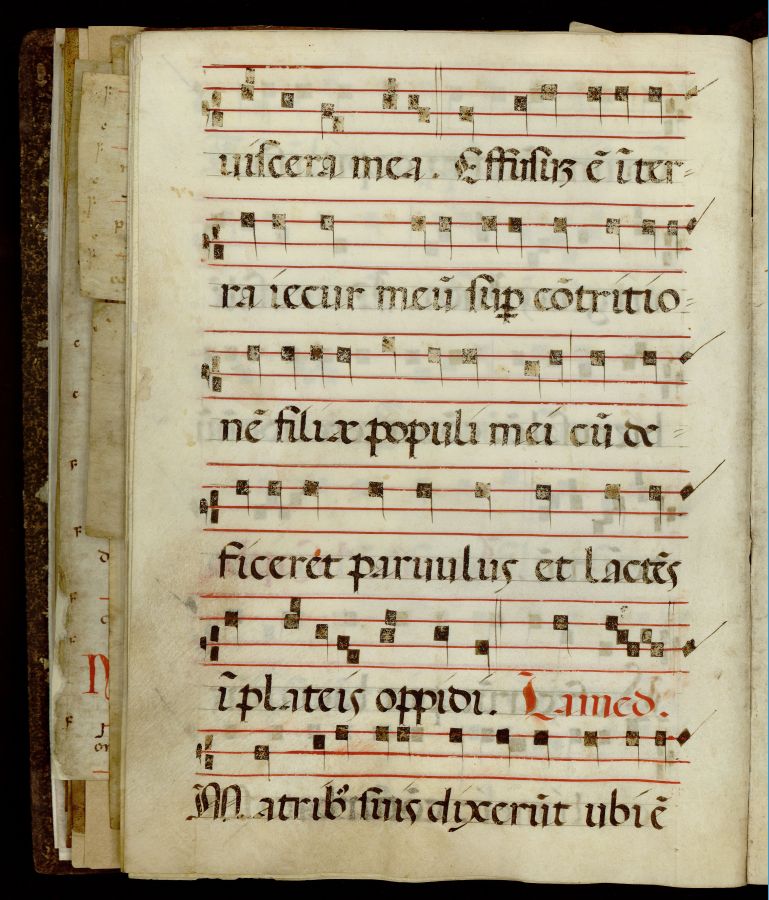 uiscera mea. Effusũꝫ ẽ ĩ ter=
ra iecur meũ suꝑ cõtritio=
nẽ filiæ populi mei cũ de=
ficeret paruulus et lactẽs
ĩ plateis oppidi. Lamed.
Matribꝰ suis dixerũt ubi ẽ